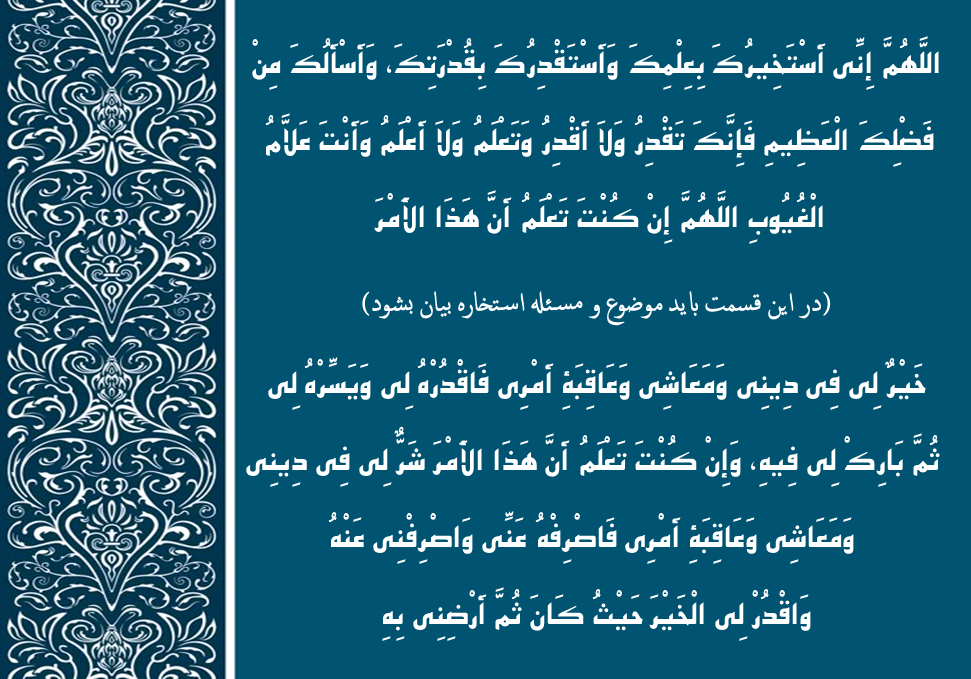 اللَّهُمَّ إِنِّى أَسْتَخِيرُكَ بِعِلْمِكَ وَأَسْتَقْدِرُكَ بِقُدْرَتِكَ، وَأَسْأَلُكَ مِنْ
فَضْلِكَ الْعَظِيمِ فَإِنَّكَ تَقْدِرُ وَلاَ أَقْدِرُ وَتَعْلَمُ وَلاَ أَعْلَمُ وَأَنْتَ عَلاَّمُ
الْغُيُوبِ اللَّهُمَّ إِنْ كُنْتَ تَعْلَمُ أَنَّ هَذَا الأَمْرَ
(در این قسمت باید موضوع و مسئله استخاره بیان بشود)
خَيْرٌ لِى فِى دِينِى وَمَعَاشِى وَعَاقِبَةِ أَمْرِى فَاقْدُرْهُ لِى وَيَسِّرْهُ لِى
ثُمَّ بَارِكْ لِى فِيهِ، وَإِنْ كُنْتَ تَعْلَمُ أَنَّ هَذَا الأَمْرَ شَرٌّ لِى فِى دِينِى
وَمَعَاشِى وَعَاقِبَةِ أَمْرِى فَاصْرِفْهُ عَنِّى وَاصْرِفْنِى عَنْهُ
وَاقْدُرْ لِى الْخَيْرَ حَيْثُ كَانَ ثُمَّ أَرْضِنِى بِهِ